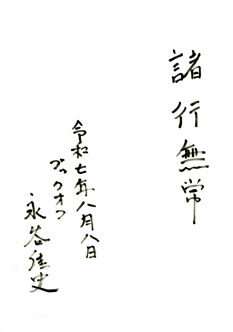 諸行無常
令和七年八月八日
ブックオフ
永谷佳史